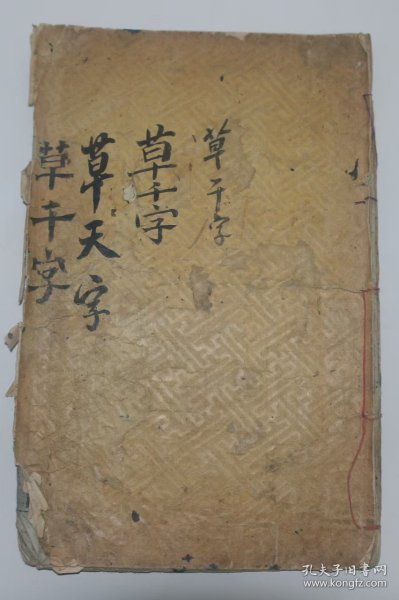 草千字
草千字
草天字
草千字
孔夫子旧书网
www.kongfz.com